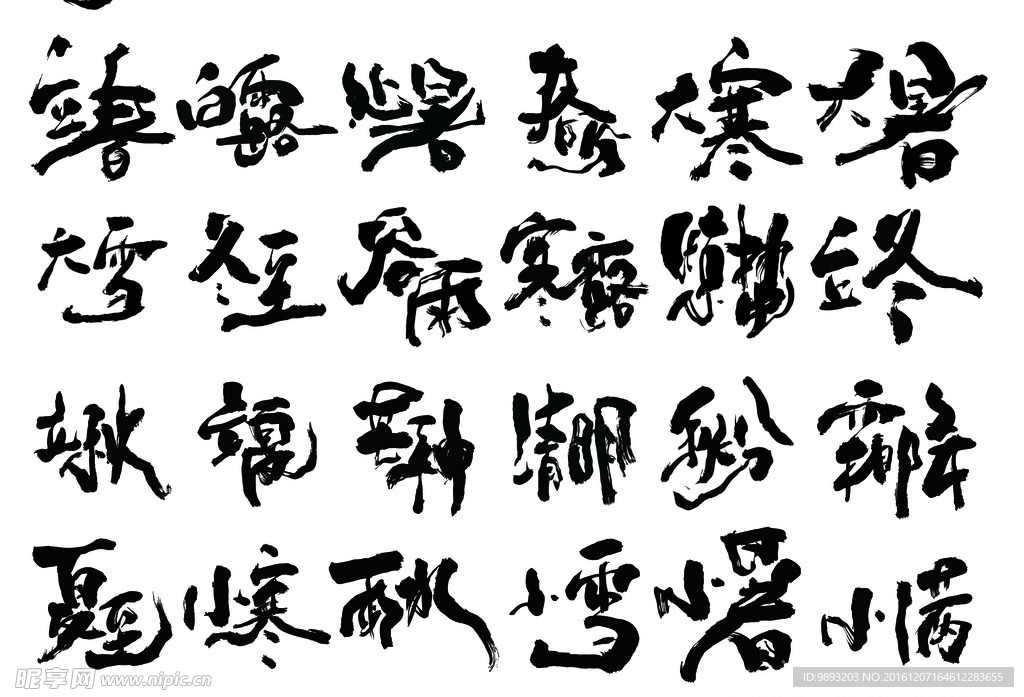 立春 白露 处暑 春分 大寒 大暑
大雪 冬至 谷雨 寒露 惊蛰 立冬
立秋 立夏 芒种 清明 秋分 霜降
夏至 小寒 雨水 小雪 小暑 小满
昵享网 www.nipic.cn
ID:9893203 NO:20161207164612283655